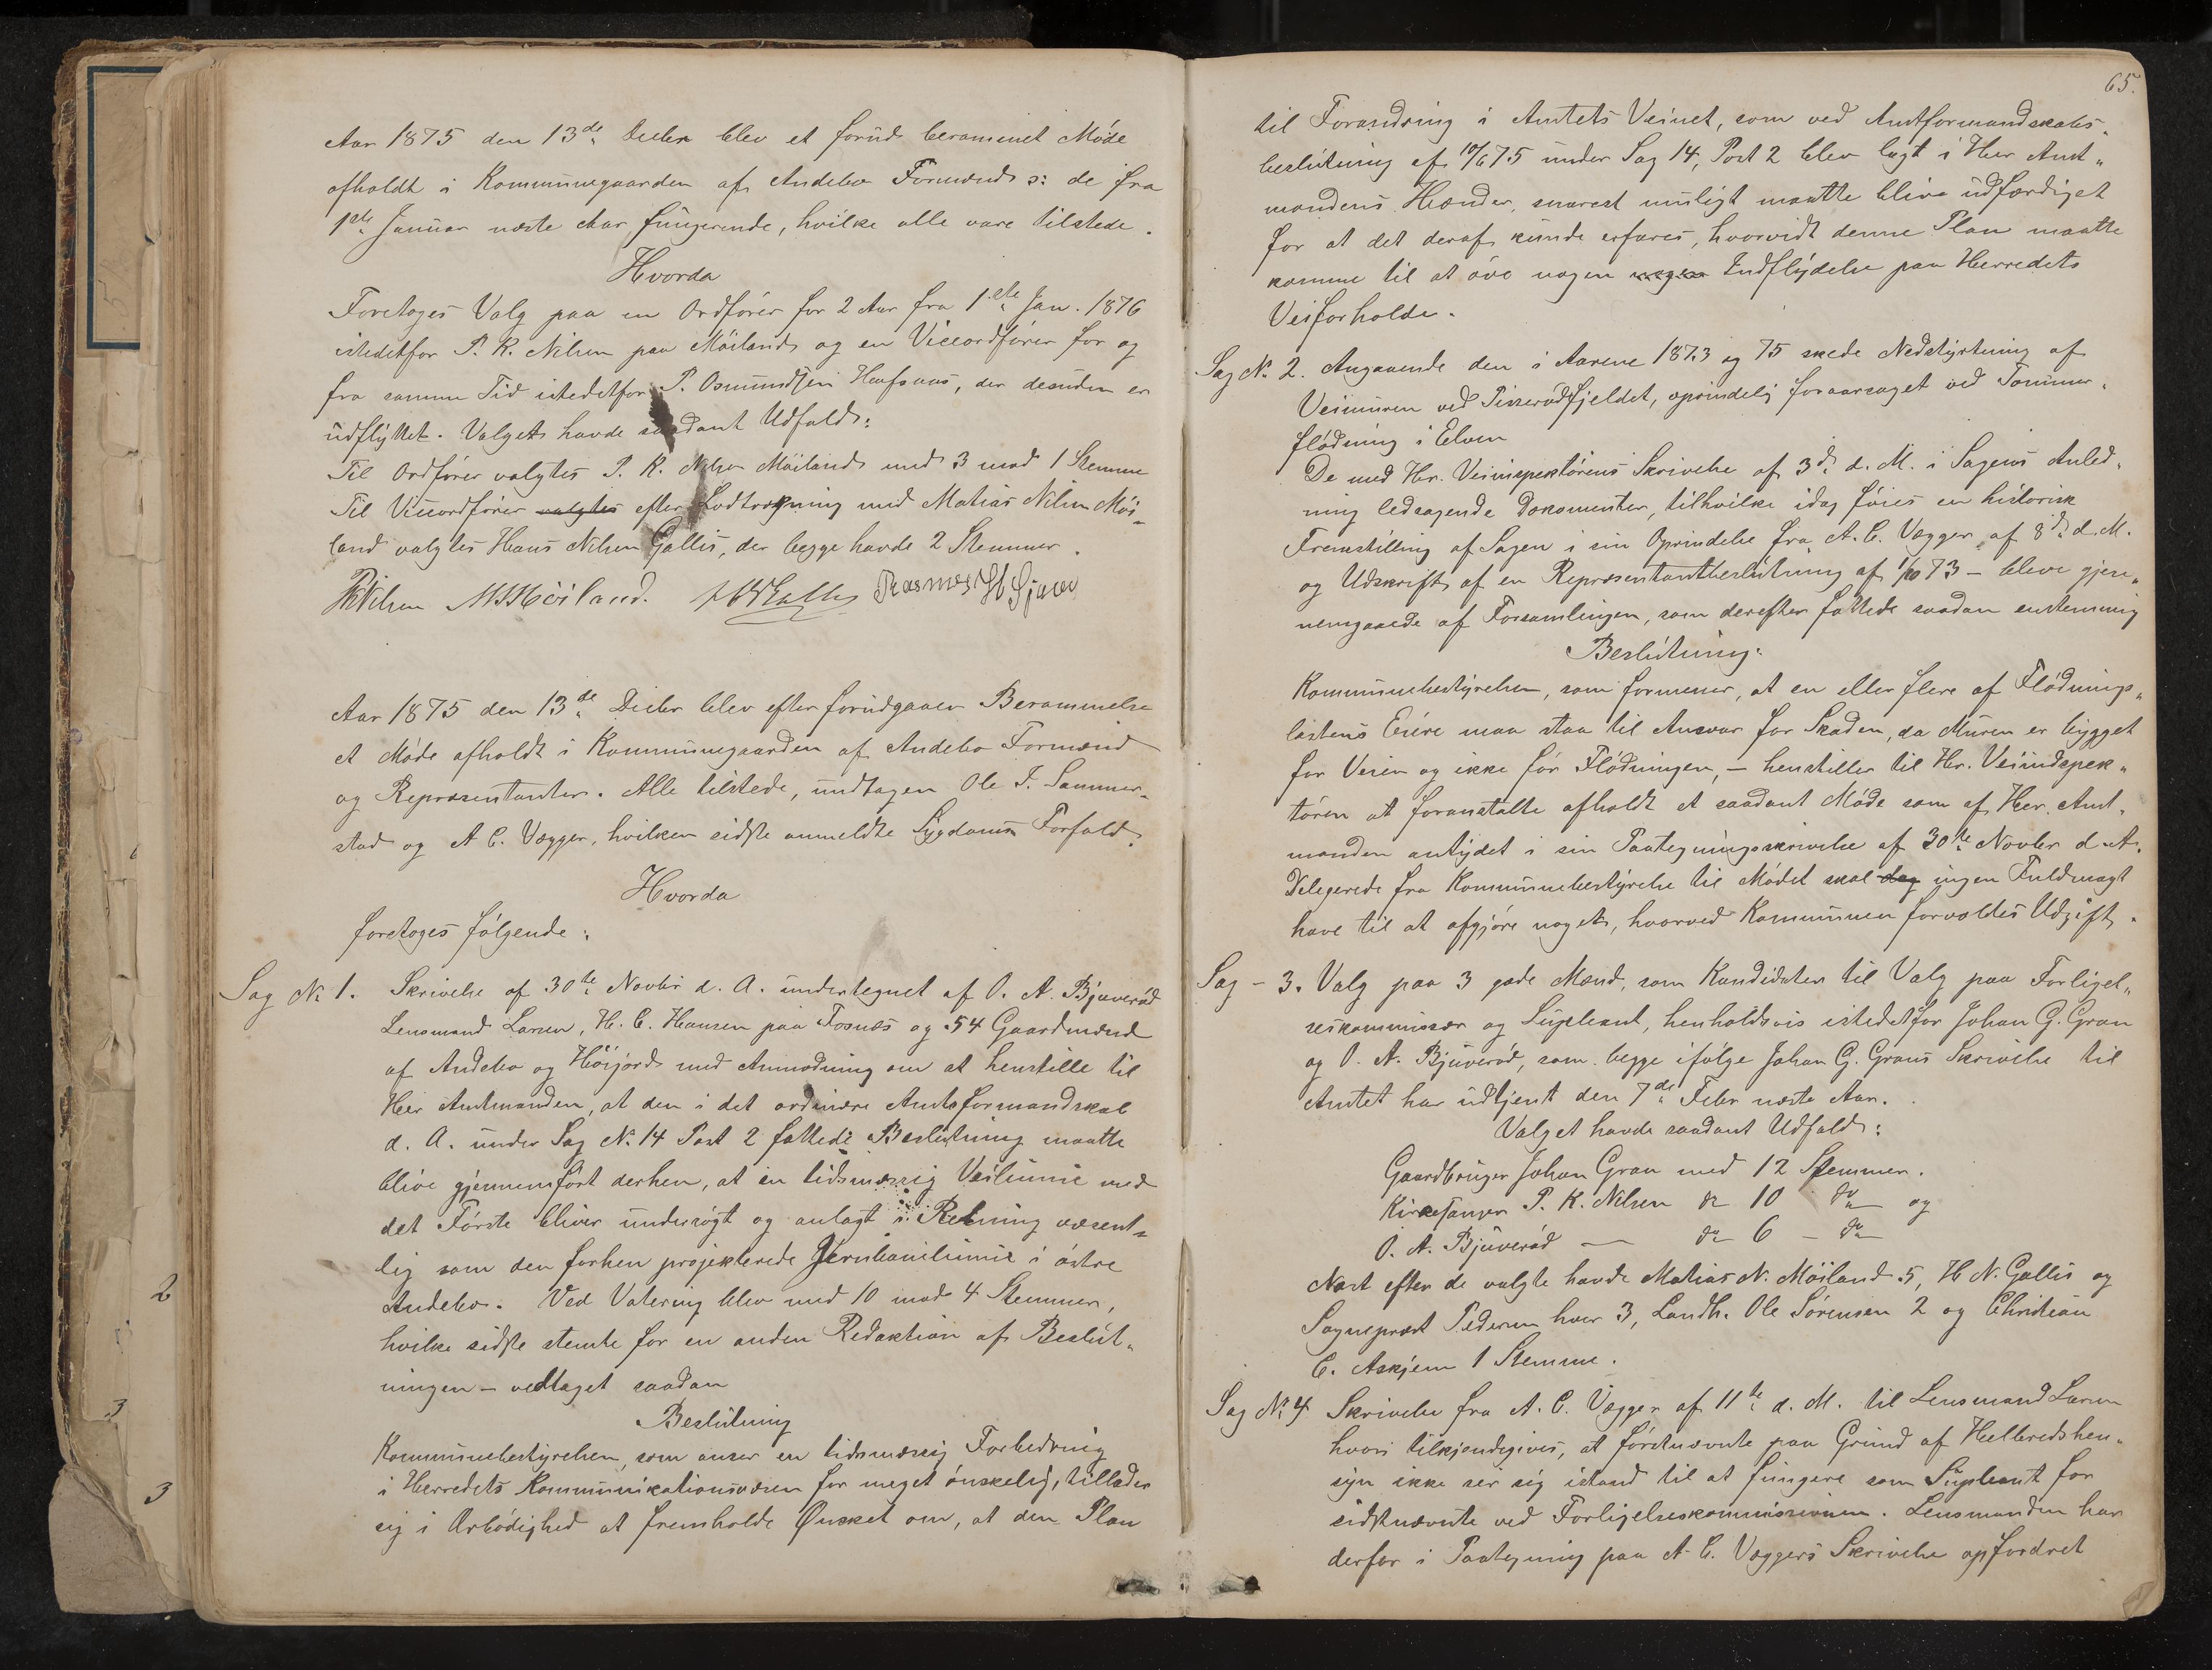 Aar 1875 den 13de Decbr blev et forud berammet Møde
afholdt i Kommunegaarden af Andebo Formænd ɔ: de fra
1ste Januar næste Aar fungerende, hvilke alle vare tilstede.
Hvorda
Foretoges Valg paa en Ordfører for 2 Aar fra 1ste Jan. 1876
istedetfor P. K. Nilsen paa Møiland og en Viceordfører for og
fra samme Tid istedetfor P. Osmundsen Heafsaas, der desuden er
udflyttet. Valget havde saadant Udfald:
Til Ordfører valgtes P. K. Nilsen Møiland med 3 mod 1 Stemme
Til Viceordfører valgtes efter Lodtrækning med Matias Nilsen Møi-
land valgtes Hans Nilsen Gallis, der begge havde 2 Stemmer.
PKNilsen MNMöiland. HNGallis Rasmus H Gjerv
Aar 1875 den 13de Decbr blev efter forudgaaen Berammelse
et Møde afholdt i Kommunegaarden af Andebo Formænd
og Repræsentanter. Alle tilstede, undtagen Ole I. Sommer-
stad og A C. Vegger, hvilken sidste anmeldte Sygdoms Forfald.
Hvorda
foretoges følgende:
Sag No 1. Skrivelse af 30te Novbr d. A. undertegnet af O. A. Bjuerød
Lensmand Larsen, H. C. Hansen paa Fosnæs og 54 Gaardmænd
af Andebo og Høijord med Anmodning om at henstille til
Herr Amtmanden, at den i det ordinære Amtsformandskab
d. A. under Sag No 14 Post 2 fattede Beslutning maatte
blive gjennemført derhen, at en tidsmæssig Veilinie med
det Første bliver undersøgt og anlagt i Retning væsent-
lig som den forhen projekterede Jernbanelinie i østre
Andebo. Ved Votering blev med 10 mod 4 Stemmer,
hvilke sidste stemte for en anden Redaktion af Beslut-
ningen – vedtaget saadan
Beslutning
Kommunebestyrelsen, som anser en tidsmæssig Forbedring
i Herredets Kommunikationsvæsen for meget ønskelig, tillader
sig i Ærbødighed at fremholde Ønsket om, at den Plan
65.
til Forandring i Amtets Veinet, som ved Amtformandskabs-
beslutning af 10/6 75 under Sag 14, Post 2 blev lagt i Herr Amt-
mandens Hænder, snarest muligt maatte blive udfærdiget
for at det deraf kunde erfares, hvorvidt denne Plan maatte
komme til at øve nogen nogen Indflydelse paa Herredets
Veiforholde.
Sag No 2. Angaaende den i Aarene 1873 og 75 skede Nedstyrtning af
Veimuren ved Pisserødfjeldet, oprindelig foraarsaget ved Tømmer-
flødning i Elven
De med Hr. Veiinspektørens Skrivelse af 3de d. M. i Sagens Anled-
ning ledsagende Dokumenter, tilhvilke idag føies en historisk
Fremstilling af Sagen i sin Oprindelse fra A. C. Vegger af 8de d. M.
og Udskrift af en Repræsentantbeslutning af 1/10 73 – bleve gjen-
nemgaaede af Forsamlingen, som derefter fattede saadan enstemmig
Beslutning:
Kommunebestyrelsen, som formener, at en eller flere af Flødnings-
lastens Eiere maa staa til Ansvar for Skaden, da Muren er bygget
for Veien og ikke for Flødningen, – henstiller til Hr. Veiindspek-
tøren at foranstalte afholdt et saadant Møde som af Herr Amt-
manden antydet i sin Paategningsskrivelse af 30te Novbr d. A.
Delegerede fra Kommunebestyrelse til Mødet skal dog ingen Fuldmagt
have til at afgjøre noget, hvorved Kommunen forvoldes Udgift.
Sag – 3. Valg paa 3 gode Mænd, som Kandidater til Valg paa Forligel-
seskommissær og Supleant, henholdsvis istedetfor Johan G. Gran
og O. A. Bjuerød, som begge ifølge Johan G. Grans Skrivelse til
Amtet har udtjent den 7de Febr næste Aar.
Valget havde saadant Udfald:
Gaardbruger Johan Gran med 12 Stemmer.
Kirkesanger P. K. Nilsen do 10 do og
O. A. Bjuerød – do 6 – do
Næst efter de valgte havde Matias N. Møiland 5, H N. Gallis og
Sogneprest Pedersen hver 3, Landh. Ole Sørensen 2 og Christian
C. Askjem 1 Stemme.
Sag No 4 Skrivelse fra A. C. Vegger af 11te d. M. til Lensmand Larsen
hvori tilkjendegives, at førstnævnte paa Grund af Helbredshen-
syn ikke ser sig istand til at fungere som Supleant for
sidstnævnte ved Forligelseskommissionen. Lensmanden har
derfor i Paategning paa A. C. Veggers Skrivelse opfordret
2
3
3